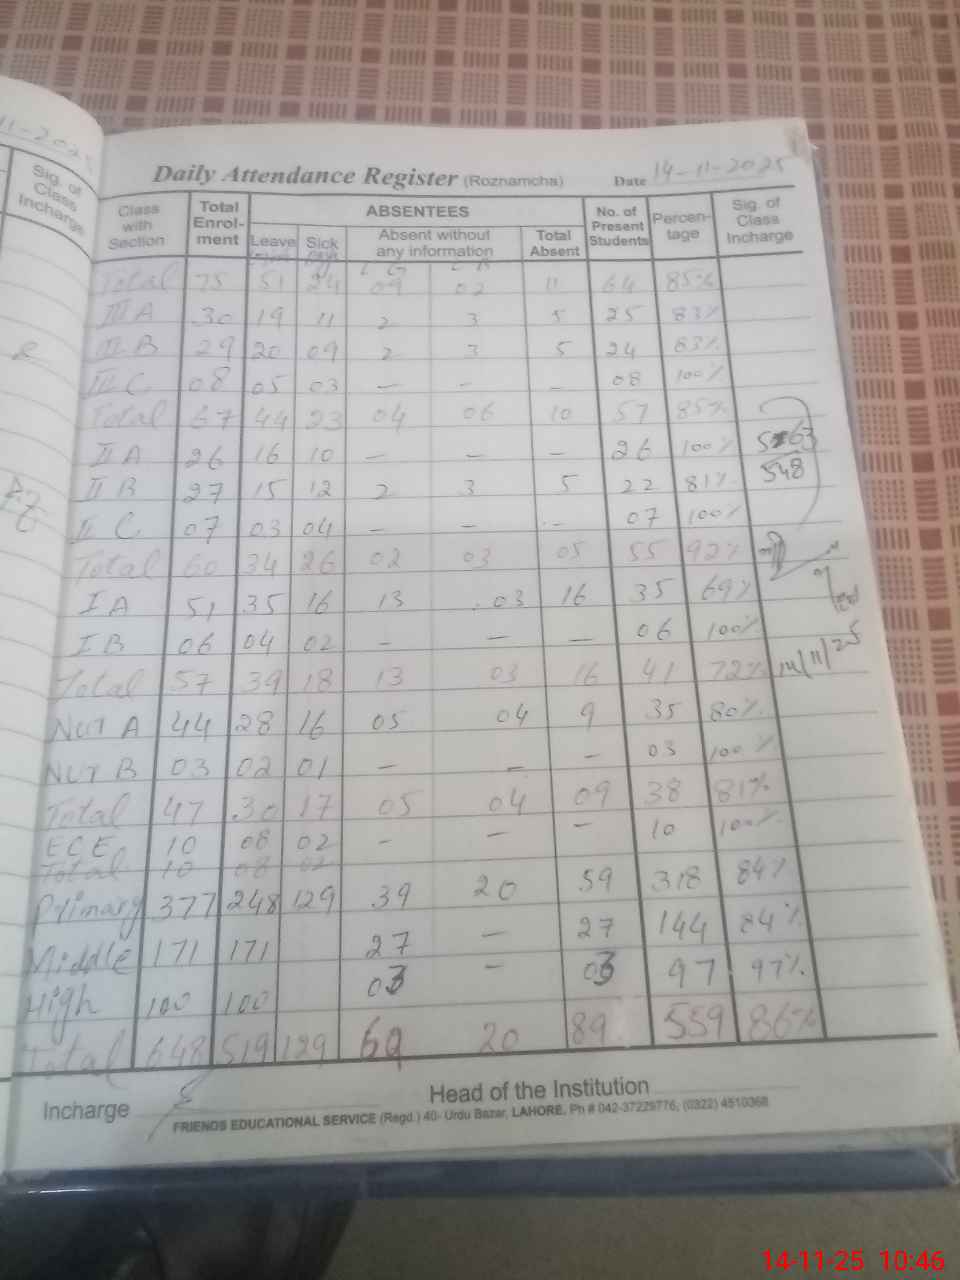 11-2025
Sig. of Class Incharge
Daily Attendance Register (Roznamcha) Date 14-11-2025
Class with Section Total Enrol-ment ABSENTEES No. of Present Students Percen-tage Sig. of Class Incharge
Leave Sick Absent without any information Total Absent
Total 75 51 24 09 02 11 64 85%
III A 30 19 11 2 3 5 25 83%
III B 29 20 09 2 3 5 24 83%
III C 08 05 03 – – – 08 100%
Total 67 44 23 04 06 10 57 85%
II A 26 16 10 – – – 26 100%
II B 27 15 12 2 3 5 22 81% 548
II C 07 03 04 – – – 07 100%
Total 60 34 26 02 03 05 55 92%
I A 51 35 16 13 03 16 35 69%
I B 06 04 02 – – – 06 100%
Total 57 39 18 13 03 16 41 72% 14/11/25
NUR A 44 28 16 05 04 9 35 80%
NUR B 03 02 01 – – – 03 100%
Total 47 30 17 05 04 09 38 81%
ECE 10 08 02 – – – 10 100%
Total 10 08 02
Primary 377 248 129 39 20 59 318 84%
Middle 171 171 27 – 27 144 84%
High 100 100 03 – 03 97 97%
Total 648 519 129 69 20 89 559 86%
Incharge Head of the Institution
FRIENDS EDUCATIONAL SERVICE (Regd.) 40- Urdu Bazar, LAHORE. Ph # 042-37229776, (0322) 4510368
14-11-25 10:46